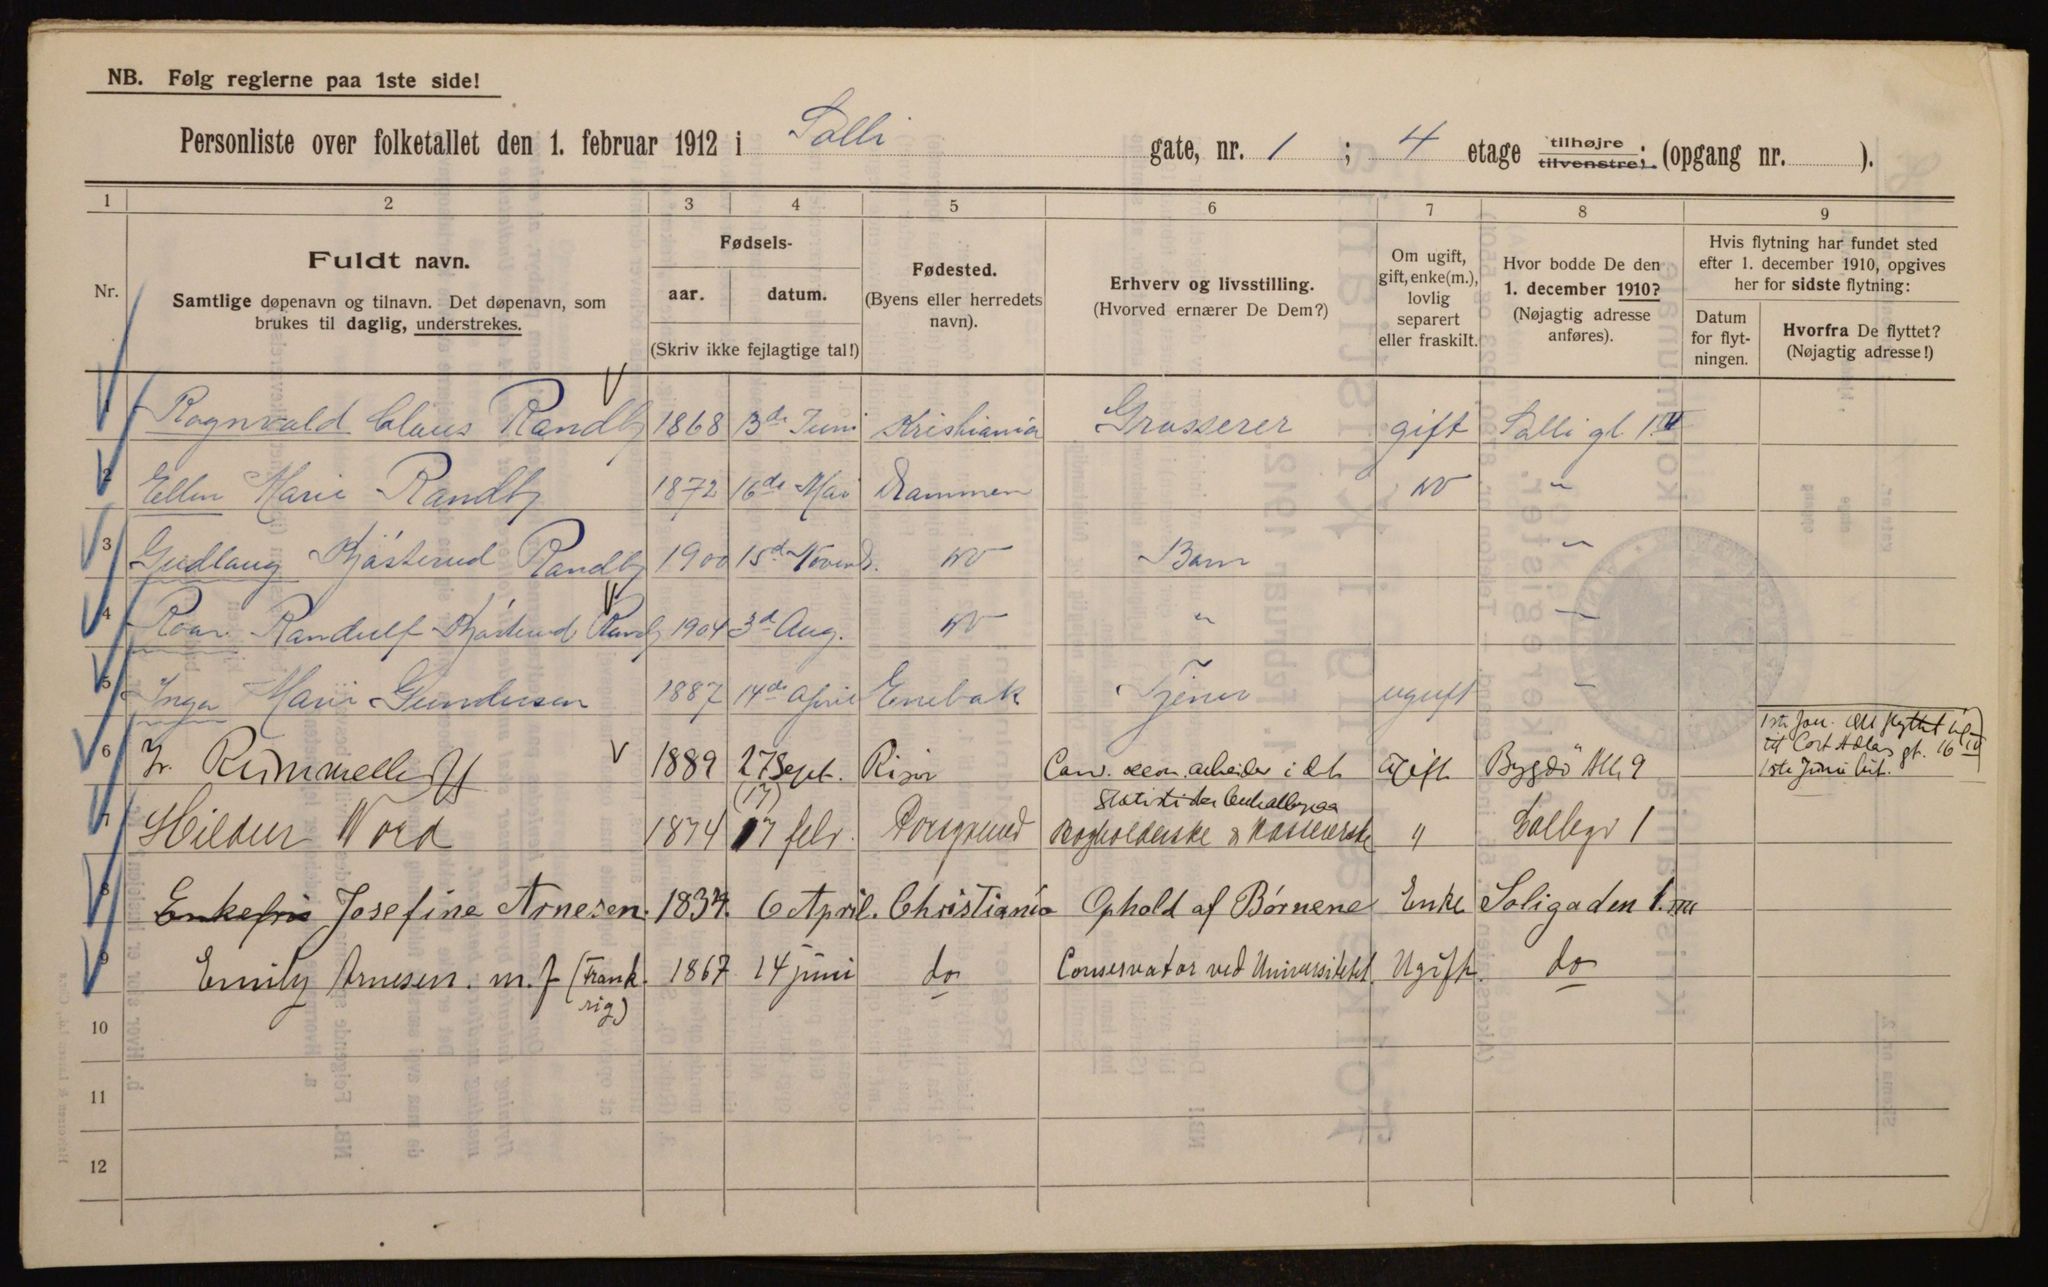 NB. Følg reglerne paa 1ste side!
Personliste over folketallet den 1. februar 1912 i Solli gate, nr. 1 ; 4 etage tilhøjre tilvenstre; (opgang nr. ).
1 2 3 4 5 6 7 8 9
Nr.
Fuldt navn.
Samtlige døpenavn og tilnavn. Det døpenavn, som
brukes til daglig, understrekes.
Fødsels-
aar. datum.
(Skriv ikke fejlagtige tal!)
Fødested.
(Byens eller herredets
navn).
Erhverv og livsstilling.
(Hvorved ernærer De Dem?)
Om ugift,
gift, enke(m.),
lovlig
separert
eller fraskilt.
Hvor bodde De den
1. december 1910?
(Nøjagtig adresse
anføres).
Hvis flytning har fundet sted
efter 1. december 1910, opgives
her for sidste flytning:
Datum
for flyt-
ningen.
Hvorfra De flyttet?
(Nøjagtig adresse!)
1 Ragnvald Claus Randby 1868 3de Juni Kristiania Grosserer gift Solli gt. 1 IV
2 Ellen Marie Randby 1872 16de Mai Drammen do "
3 Gudlaug Kjösterud Randby 1900 15d Novemb. do Barn "
4 Roar Randulf Kjösterud Randby 1904 3d Aug. do " "
5 Inga Marie Gundersen 1887 14de April Enebak Tjener ugift "
6 Fr. 1889 27 Sept. Risør Cand. oecon. arbeider i det Ugift Bygdö Alle 9
(17) Statistiske Centralbyraa
1ste Jan. flyttet
til Cort Adelas gt. 16
1ste Juni
7 Hildur Nord 1874 17 febr. Porsgrund Bogholderske & Kassererske " Solligd 1
8 Enkefru Josefine Arnesen. 1837. 6 April. Christiania Ophold af Börnene Enke Soligaden 1. IIII
9 Emily Arnesen. m. f (Frank- 1867 14 juni do Conservator ved Universitetet. Ugift. do
rig)
10
11
12